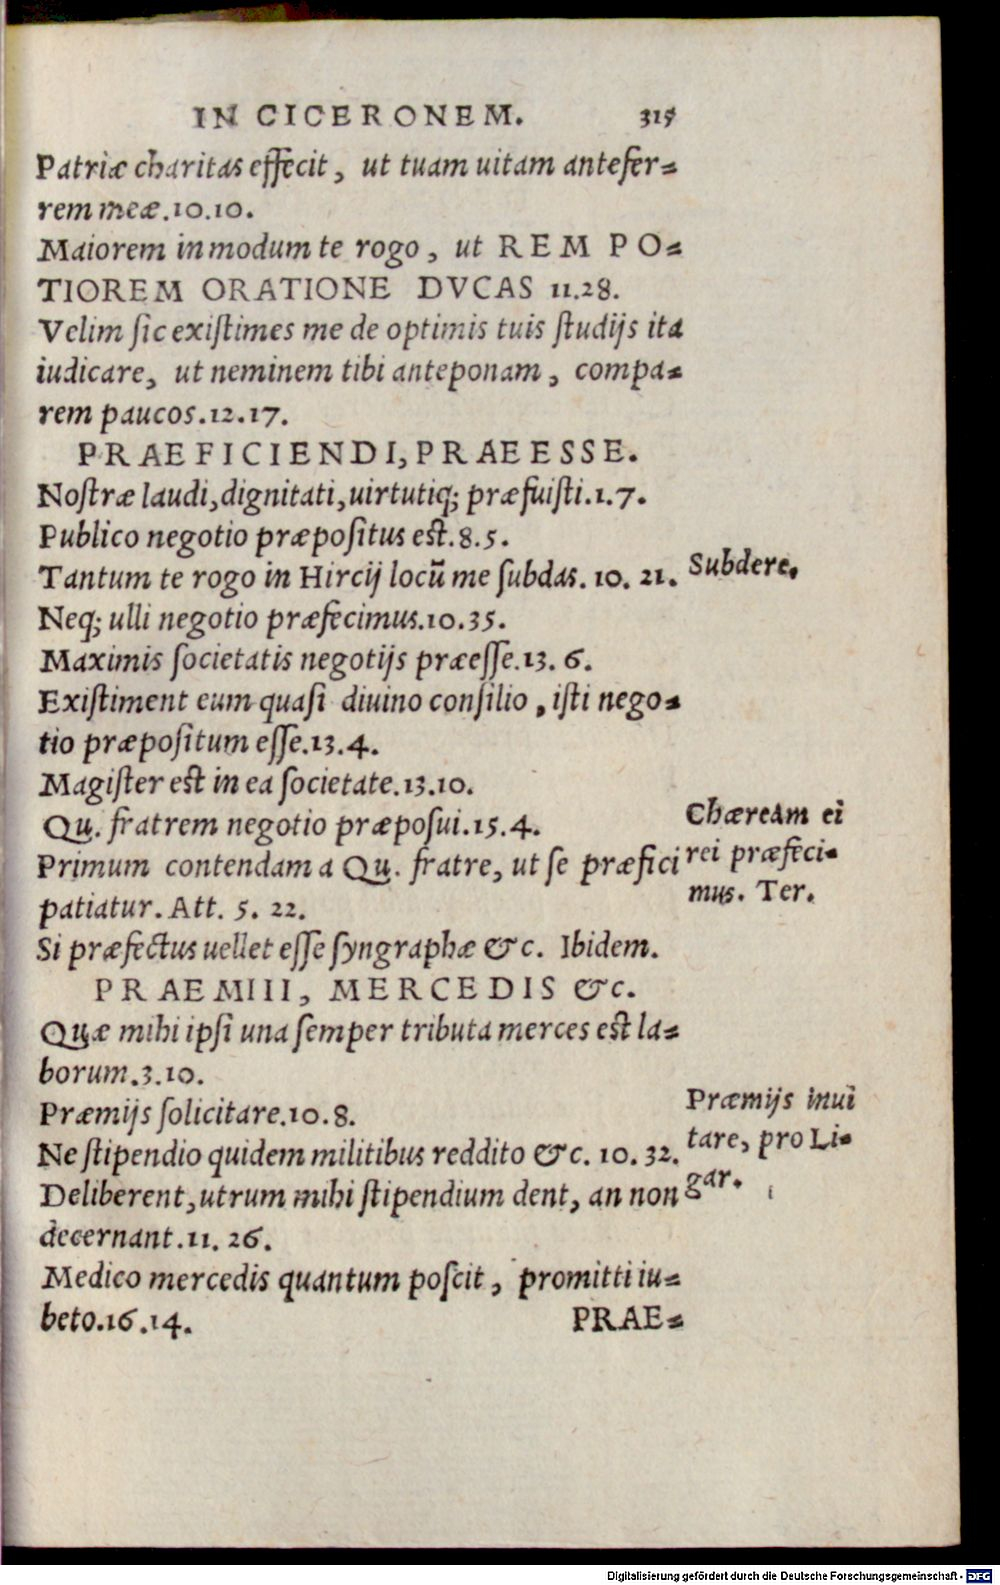 IN CICERONEM. 315
Patriæ charitas effecit, ut tuam uitam antefer-
rem meæ.10.10.
Maiorem in modum te rogo, ut REM PO-
TIOREM ORATIONE DVCAS 11.28.
Velim sic existimes me de optimis tuis studijs ita
iudicare, ut neminem tibi anteponam, compa-
rem paucos.12.17.
PRAEFICIENDI, PRAEESSE.
Nostræ laudi, dignitati, uirtutiq; præfuisti.1.7.
Publico negotio præpositus est.8.5.
Tantum te rogo in Hircij locū me subdas. 10. 21.
Subdere.
Neq; ulli negotio præfecimus.10.35.
Maximis societatis negotijs præesse.13. 6.
Existiment eum quasi diuino consilio, isti nego-
tio præpositum esse.13.4.
Magister est in ea societate.13.10.
Qu. fratrem negotio præposui.15.4.
Primum contendam a Qu. fratre, ut se præfici
patiatur. Att. 5. 22.
Chæream ei
rei præfeci-
mus. Ter.
Si præfectus uellet esse syngraphæ &c. Ibidem.
PRAEMIII, MERCEDIS &c.
Quæ mihi ipsi una semper tributa merces est la-
borum.3.10.
Præmijs solicitare.10.8.
Ne stipendio quidem militibus reddito &c. 10. 32.
Deliberent, utrum mihi stipendium dent, an non
decernant.11. 26.
Præmijs inui
tare, pro Li-
gar.
Medico mercedis quantum poscit, promitti iu-
beto.16.14.
PRAE-
Digitalisierung gefördert durch die Deutsche Forschungsgemeinschaft - DFG